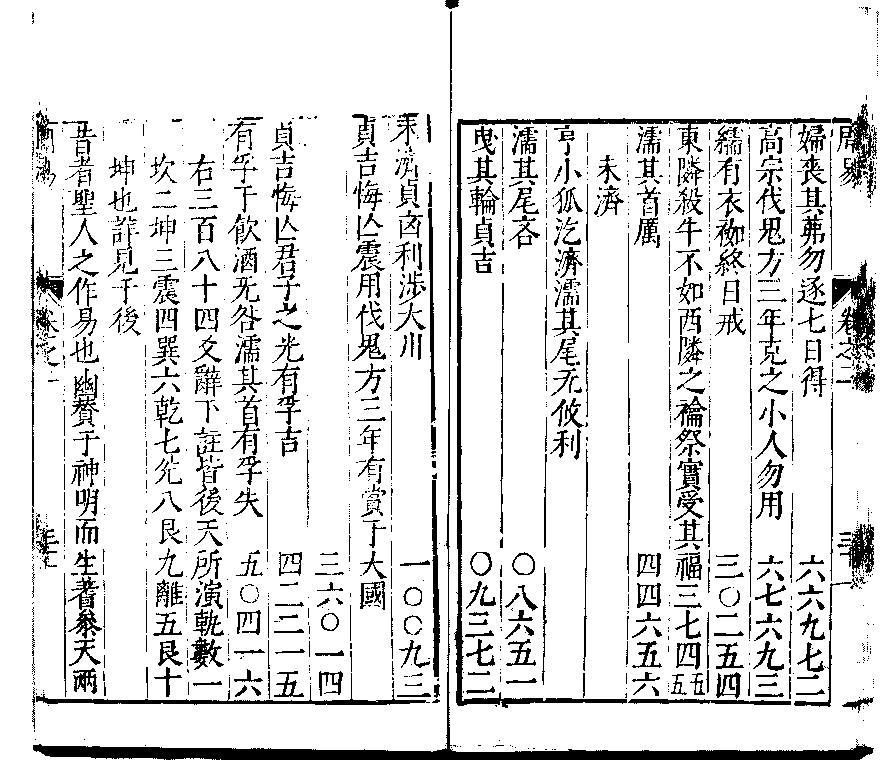 周易　卷之二　三十
婦喪其茀勿逐七日得　六六九七二
高宗伐鬼方三年克之小人勿用　六七六九三
繻有衣袽終日戒　三〇二五四
東隣殺牛不如西隣之禴祭實受其福三七四五五
濡其首厲　四四六五六
未濟
亨小狐汔濟濡其尾无攸利
濡其尾吝　〇八六五一
曳其輪貞吉　〇九三七二
未濟貞㐫利涉大川　一〇〇九三
貞吉悔亾震用伐鬼方三年有賞于大國
三六〇一四
貞吉悔亾君子之光有孚吉　四二二一五
有孚于飲酒无咎濡其首有孚失　五〇四一六
右三百八十四爻辭下註皆後天所演軌數一
坎二坤三震四巽六乾七兊八艮九離五艮十
坤也詳見于後
昔者聖人之作易也幽贊于神明而生蓍叅天兩
周易　卷之